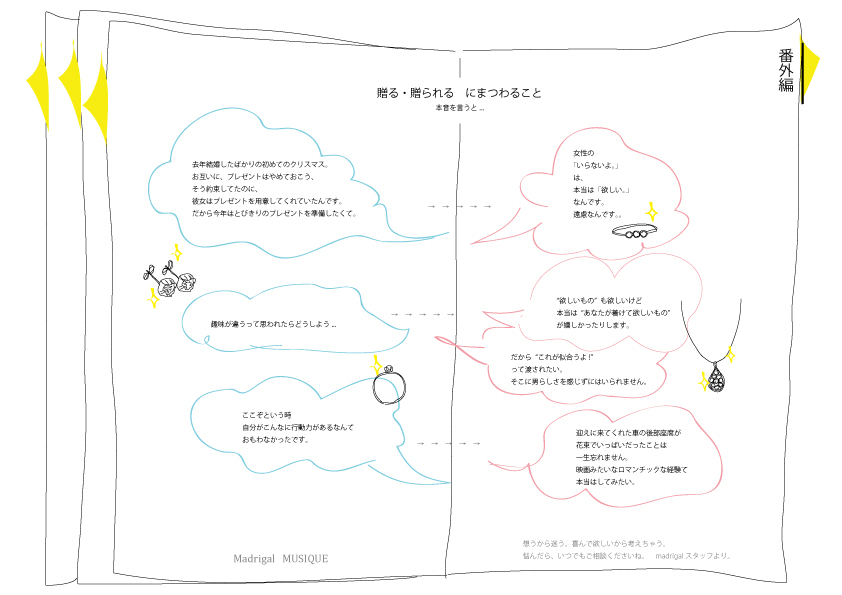 番外編
贈る・贈られる　にまつわること
本音を言うと...
去年結婚したばかりの初めてのクリスマス。
お互いに、プレゼントはやめておこう、
そう約束してたのに、
彼女はプレゼントを用意してくれていたんです。
だから今年はとびきりのプレゼントを準備したくて。
女性の
「いらないよ。」
は、
本当は「欲しい。」
なんです。
遠慮なんです。。
趣味が違うって思われたらどうしよう...
“欲しいもの”も欲しいけど
本当は“あなたが着けて欲しいもの”
が嬉しかったりします。
だから“これが似合うよ!”
って渡されたい。
そこに男らしさを感じずにはいられません。
ここぞという時
自分がこんなに行動力があるなんて
おもわなかったです。
迎えに来てくれた車の後部座席が
花束でいっぱいだったことは
一生忘れません。
映画みたいなロマンチックな経験て
本当はしてみたい。
想うから迷う、喜んで欲しいから考えちゃう。
悩んだら、いつでもご相談くださいね。　madrigalスタッフより。
Madrigal MUSIQUE